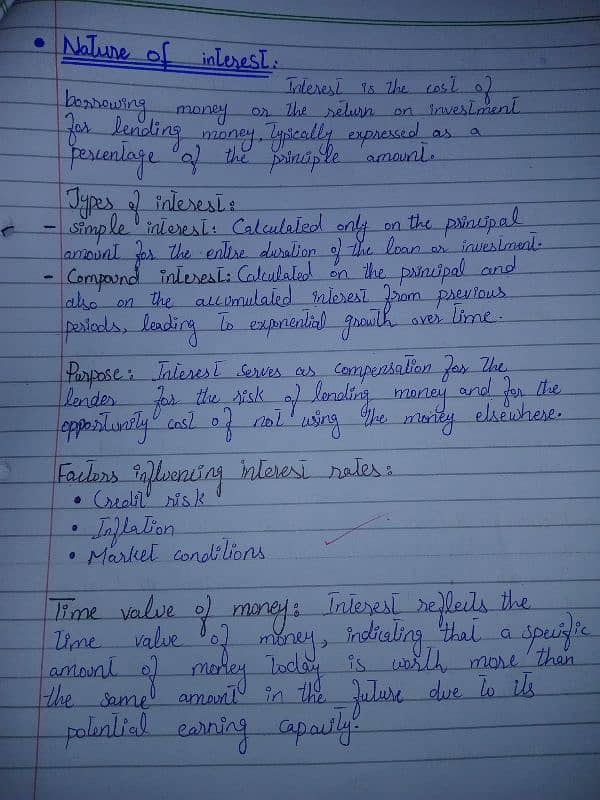 • Nature of interest:
Interest is the cost of
borrowing money or the return on investment
for lending money. Typically expressed as a
percentage of the principle amount.
Types of interest:
- Simple interest: Calculated only on the principal
amount for the entire duration of the loan or investment.
- Compound interest: Calculated on the principal and
also on the accumulated interest from previous
periods, leading to exponential growth over time.
Purpose: Interest serves as compensation for the
lender for the risk of lending money and for the
opportunity cost of not using the money elsewhere.
Factors influencing interest rates:
• Credit risk
• Inflation
• Market conditions
Time value of money: Interest reflects the
time value of money, indicating that a specific
amount of money today is worth more than
the same amount in the future due to its
potential earning capacity.